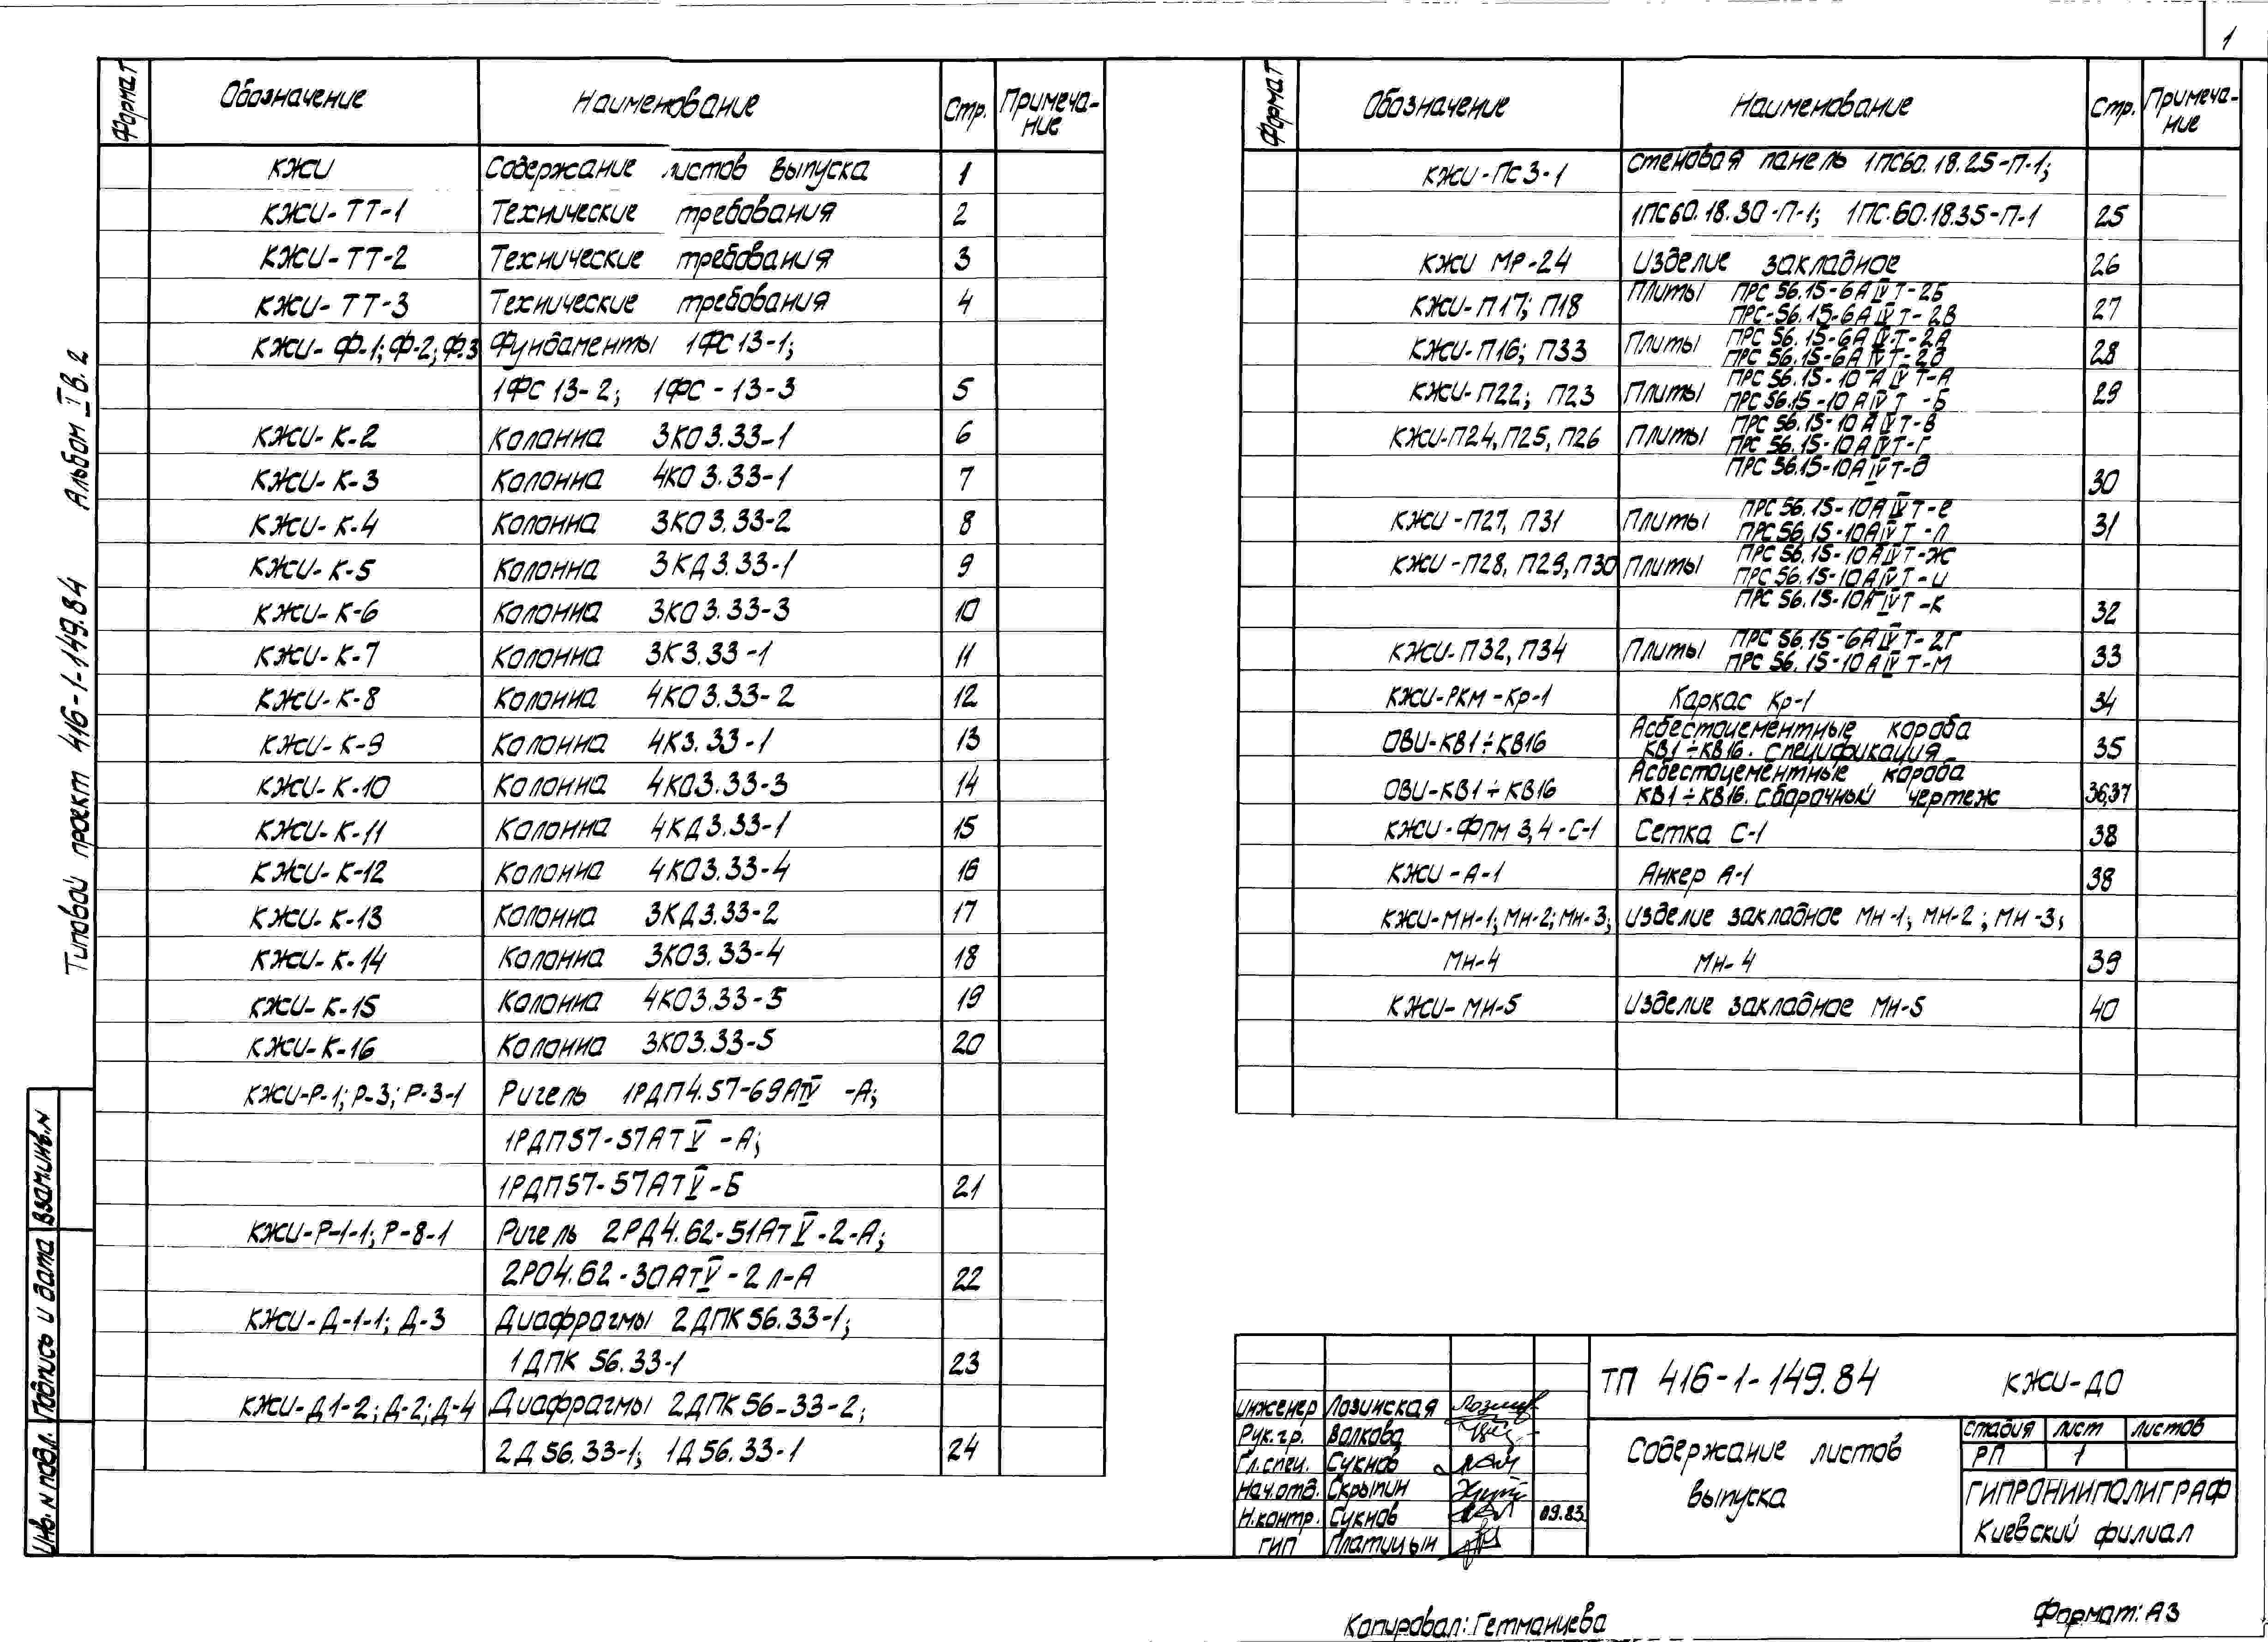 1
Типовой проект 416-1-149.84 Альбом IV в.2
Формат Обозначение Наименование Стр. Примеча-
ние
КЖИ Содержание листов выпуска 1
КЖИ-ТТ-1 Технические требования 2
КЖИ-ТТ-2 Технические требования 3
КЖИ-ТТ-3 Технические требования 4
КЖИ-Ф-1; Ф-2; Ф.3 Фундаменты 1ФС13-1;
1ФС13-2; 1ФС-13-3 5
КЖИ-К-2 Колонна 3КО3.33-1 6
КЖИ-К-3 Колонна 4КО3.33-1 7
КЖИ-К-4 Колонна 3КО3.33-2 8
КЖИ-К-5 Колонна 3КД3.33-1 9
КЖИ-К-6 Колонна 3КО3.33-3 10
КЖИ-К-7 Колонна 3К3.33-1 11
КЖИ-К-8 Колонна 4КО3.33-2 12
КЖИ-К-9 Колонна 4К3.33-1 13
КЖИ-К-10 Колонна 4КО3.33-3 14
КЖИ-К-11 Колонна 4КД3.33-1 15
КЖИ-К-12 Колонна 4КО3.33-4 16
КЖИ-К-13 Колонна 3КД3.33-2 17
КЖИ-К-14 Колонна 3КО3.33-4 18
КЖИ-К-15 Колонна 4КО3.33-5 19
КЖИ-К-16 Колонна 3КО3.33-5 20
КЖИ-Р-1; Р-3; Р-3-1 Ригель 1РДП4.57-69АТIV -А;
1РДП57-57АТV -А;
1РДП57-57АТV-Б 21
КЖИ-Р-1-1; Р-8-1 Ригель 2РД4.62-51АТV-2-А;
2РО4.62-30АТV-2л-А 22
КЖИ-Д-1-1; Д-3 Диафрагмы 2ДПК56.33-1;
1ДПК 56.33-1 23
КЖИ-Д1-2; Д-2; Д-4 Диафрагмы 2ДПК56-33-2;
2Д56.33-1; 1Д56.33-1 24
Формат Обозначение Наименование Стр. Примеча-
ние
КЖИ-ПС3-1 Стеновая панель 1ПС60.18.25-П-1;
1ПС60.18.30-П-1; 1ПС.60.18.35-П-1 25
КЖИ МР-24 Изделие закладное 26
КЖИ-П17; П18 Плиты ПРС 56.15-6АIVТ-2Б
ПРС-56.15-6АIVТ-2В 27
КЖИ-П16; П33 Плиты ПРС 56.15-6АIVТ-2А
ПРС 56.15-6АIVТ-2Д 28
КЖИ-П22; П23 Плиты ПРС 56.15-10АIVТ-А
ПРС 56.15-10АIVТ-Б 29
КЖИ-П24, П25, П26 Плиты ПРС 56.15-10АIVТ-В
ПРС 56.15-10АIVТ-Г
ПРС 56.15-10АIVТ-Д 30
КЖИ-П27, П31 Плиты ПРС 56.15-10АIVТ-Е
ПРС 56.15-10АIVТ-Л 31
КЖИ-П28, П29, П30 Плиты ПРС 56.15-10АIVТ-Ж
ПРС 56.15-10АIVТ-И
ПРС 56.15-10АIVТ-К 32
КЖИ-П32, П34 Плиты ПРС 56.15-6АIVТ-2Г
ПРС 56.15-10АIVТ-М 33
КЖИ-РКМ-Кр-1 Каркас Кр-1 34
ОВИ-КВ1÷КВ16 Асбестоцементные короба
КВ1÷КВ16. Спецификация 35
ОВИ-КВ1÷КВ16 Асбестоцементные короба
КВ1÷КВ16. Сборочный чертеж 36,37
КЖИ-ФПМ 3,4-С-1 Сетка С-1 38
КЖИ-А-1 Анкер А-1 38
КЖИ-Мн-1; Мн-2; Мн-3; Изделие закладное Мн-1; Мн-2; Мн-3;
Мн-4 Мн-4 39
КЖИ-Мн-5 Изделие закладное Мн-5 40
Инв. N подл. Подпись и дата Взам.инв.N
Инженер Лозинская
Рук.гр. Волкова
Гл.спец. Сукнов
Нач.отд. Скрыпин
Н.контр. Сукнов 09.83
ГИП Платицын
ТП 416-1-149.84 КЖИ-ДО
Содержание листов
выпуска
Стадия Лист Листов
РП 1
ГИПРОНИИПОЛИГРАФ
Киевский филиал
Копировал: Гетманцева Формат: А3